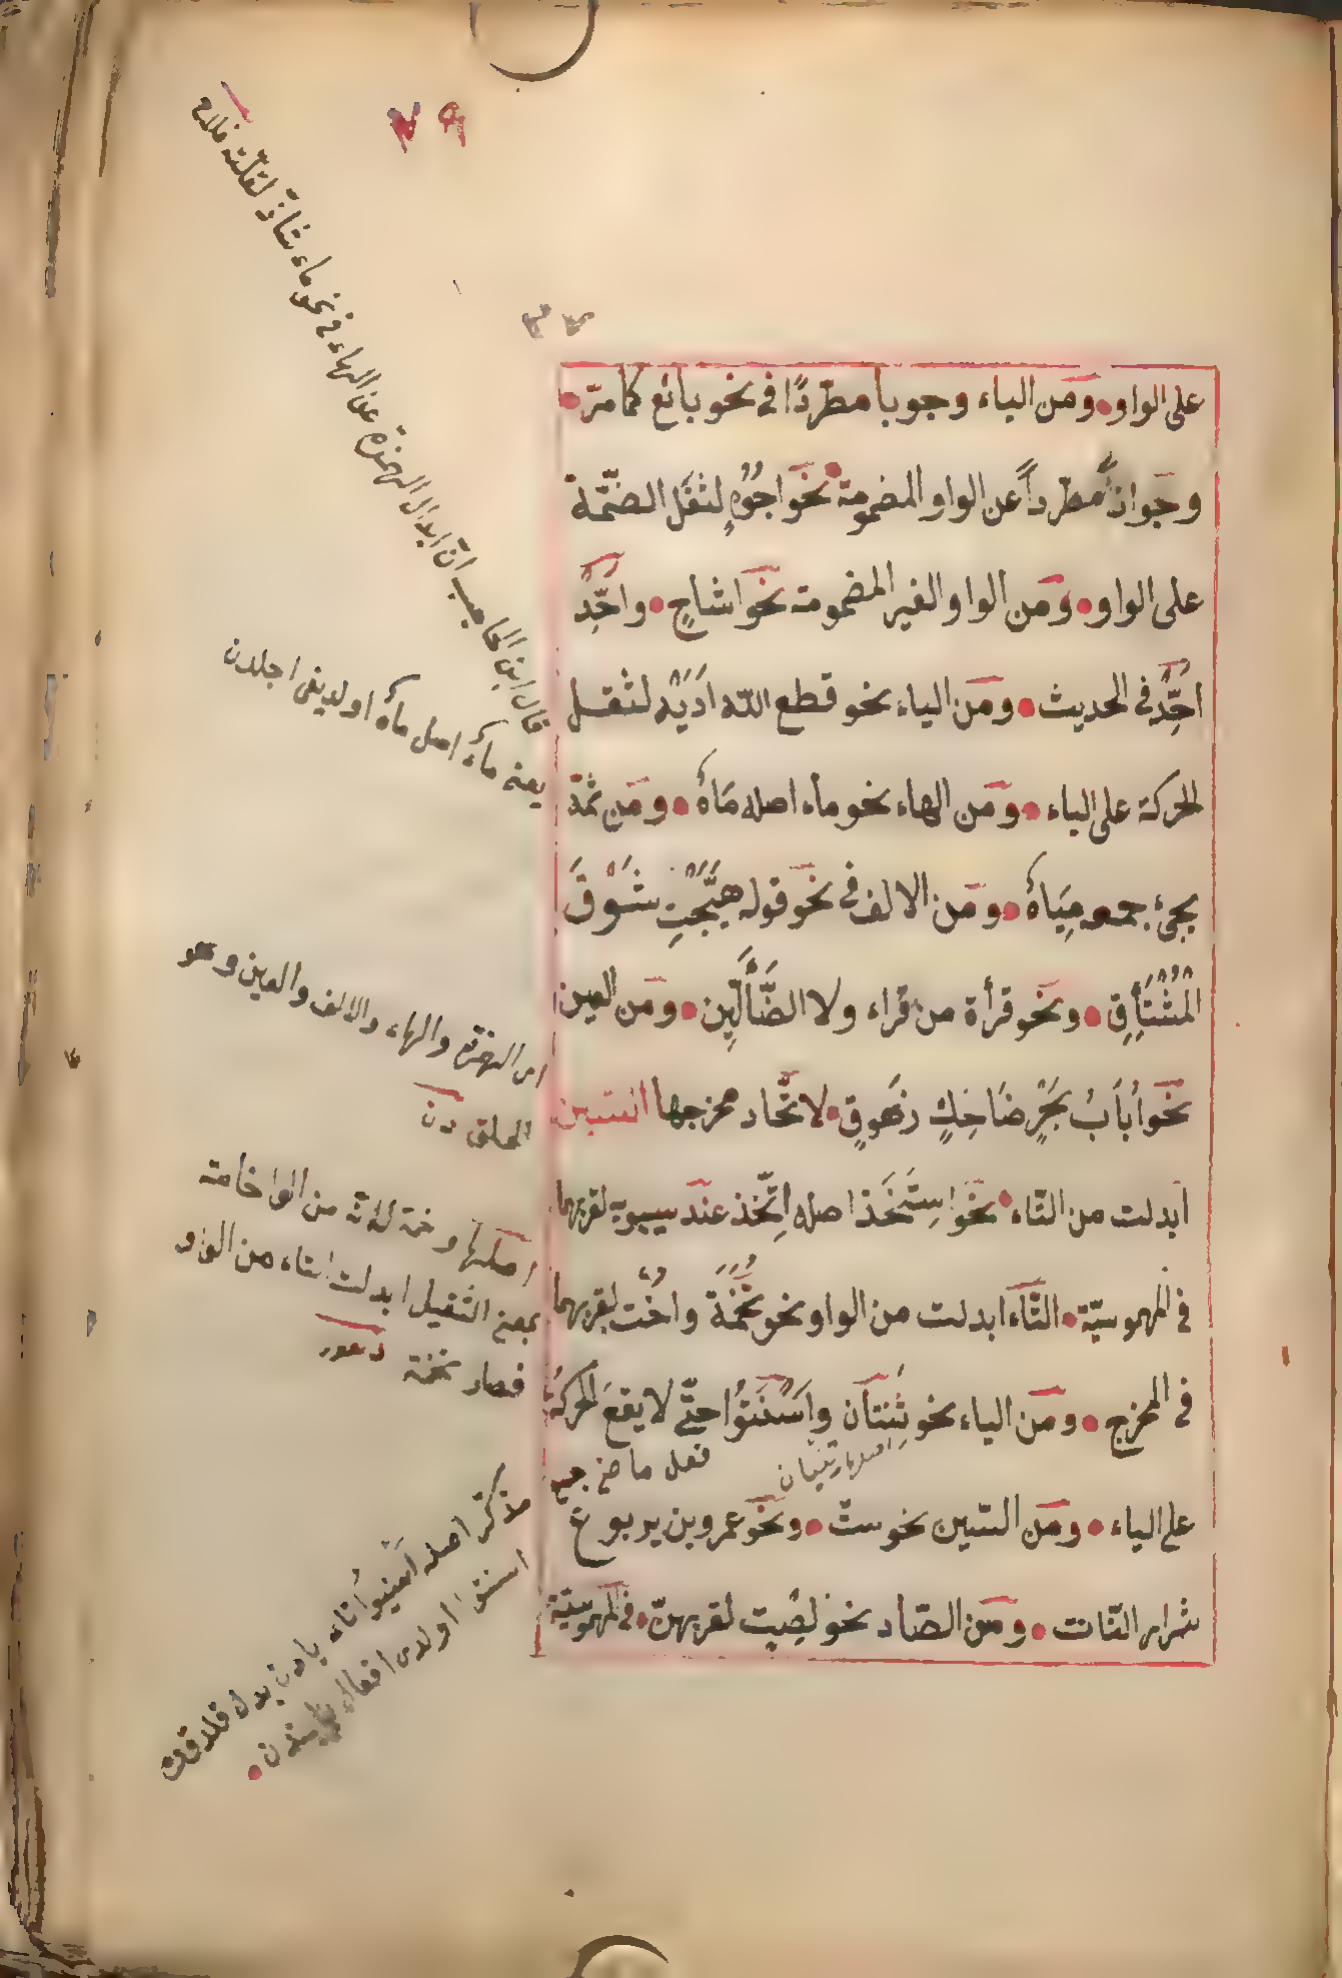 على الواو ومن الياء وجوبا مطّردًا في نحو بائع كما مرّ
وجوازاً مطّرداً عن الواو المضمومة نحو اجُوُهٍ لثقل الضّمّة
على الواو ومن الواو الغير المضمومة نحو اشاحٍ واحِّد
احِّد في الحديث ومن الياء نحو قطع الله اَدَيْه لثقل
الحركة على الياء ومن الهاء نحو ماء اصله مَاهٌ ومن ثمّة
يجئ جمعه مِيَاهٌ ومن الالف في نحو قوله هَيَّجْتِ شَوْقَ
الْمُشْتَأِقِ ونحو قرأة من قراء ولا الضَّأَلِّين ومن العين
نحو اُبَابُ بَحْرٍ ضَاحِكٍ زَهوقٍ لاتّحاد مخرجها السّين
ابدلت من التّاء نحو اسْتَخَذ اصله اتّخذ عند سيبويه لقربهما
في المهموسيّة التّاء ابدلت من الواو نحو تُخَمَة واخْت لقربهما
في المخرج ومن الياء نحو ثِنتان واَسْنَتُوا حتّى لا يقع الحركة
اصله ثنيان
فعل ماض جمع
على الياء ومن السّين نحو ستّ ونحو عمرو بن يربوع
شرار النّات ومن الصّاد نحو لِصْت لقربهنّ في المهموسيّة
قال ابن الحاجب انّ ابدال الهمزة عن الهاء في نحو ماء شاذّ لقلّته
يعنى ماءٌ اصل ماهٌ اولديغى اجلدن
اى الهمزة والهاء والالف والعين وهو
الحلق
اصلها وخمة لانّه من الواخامة
بمعنى الثقيل ابدلت التاء من الواو
فصار تخمة
مذكّر اصله اَسْنَيُوا
اسنتوا اولدى